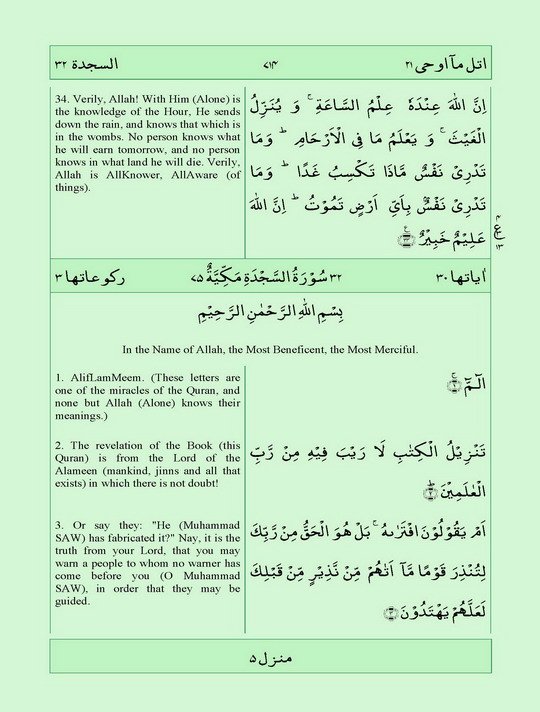 السجدة ٣٢
٧١٤
اتل مآ اوحی ٢١
34. Verily, Allah! With Him (Alone) is
the knowledge of the Hour, He sends
down the rain, and knows that which is
in the wombs. No person knows what
he will earn tomorrow, and no person
knows in what land he will die. Verily,
Allah is AllKnower, AllAware (of
things).
اِنَّ اللّٰهَ عِنْدَهٗ عِلْمُ السَّاعَةِ ۚ وَ يُنَزِّلُ
الْغَيْثَ ۚ وَ يَعْلَمُ مَا فِی الْاَرْحَامِ ؕ وَمَا
تَدْرِیْ نَفْسٌ مَّاذَا تَكْسِبُ غَدًا ؕ وَمَا
تَدْرِیْ نَفْسٌۢ بِاَیِّ اَرْضٍ تَمُوْتُ ؕ اِنَّ اللّٰهَ
عَلِيْمٌ خَبِيْرٌ ۟ۧ ﴿٣٤﴾
٤
ع
١٣
رکوعاتها ٣
٣٢ سُوْرَةُ السَّجْدَةِ مَكِّيَّةٌ ٧٥
اٰیاتها ٣٠
بِسْمِ اللّٰهِ الرَّحْمٰنِ الرَّحِيْمِ
In the Name of Allah, the Most Beneficent, the Most Merciful.
1. AlifLamMeem. (These letters are
one of the miracles of the Quran, and
none but Allah (Alone) knows their
meanings.)
الٓمّٓ ۚ ﴿١﴾
2. The revelation of the Book (this
Quran) is from the Lord of the
Alameen (mankind, jinns and all that
exists) in which there is not doubt!
تَنْزِيْلُ الْكِتٰبِ لَا رَيْبَ فِيْهِ مِنْ رَّبِّ
الْعٰلَمِيْنَ ؕ ﴿٢﴾
3. Or say they: "He (Muhammad
SAW) has fabricated it?" Nay, it is the
truth from your Lord, that you may
warn a people to whom no warner has
come before you (O Muhammad
SAW), in order that they may be
guided.
اَمْ يَقُوْلُوْنَ افْتَرٰىهُ ۚ بَلْ هُوَ الْحَقُّ مِنْ رَّبِّكَ
لِتُنْذِرَ قَوْمًا مَّاۤ اَتٰىهُمْ مِّنْ نَّذِيْرٍ مِّنْ قَبْلِكَ
لَعَلَّهُمْ يَهْتَدُوْنَ ﴿٣﴾
منزل ٥